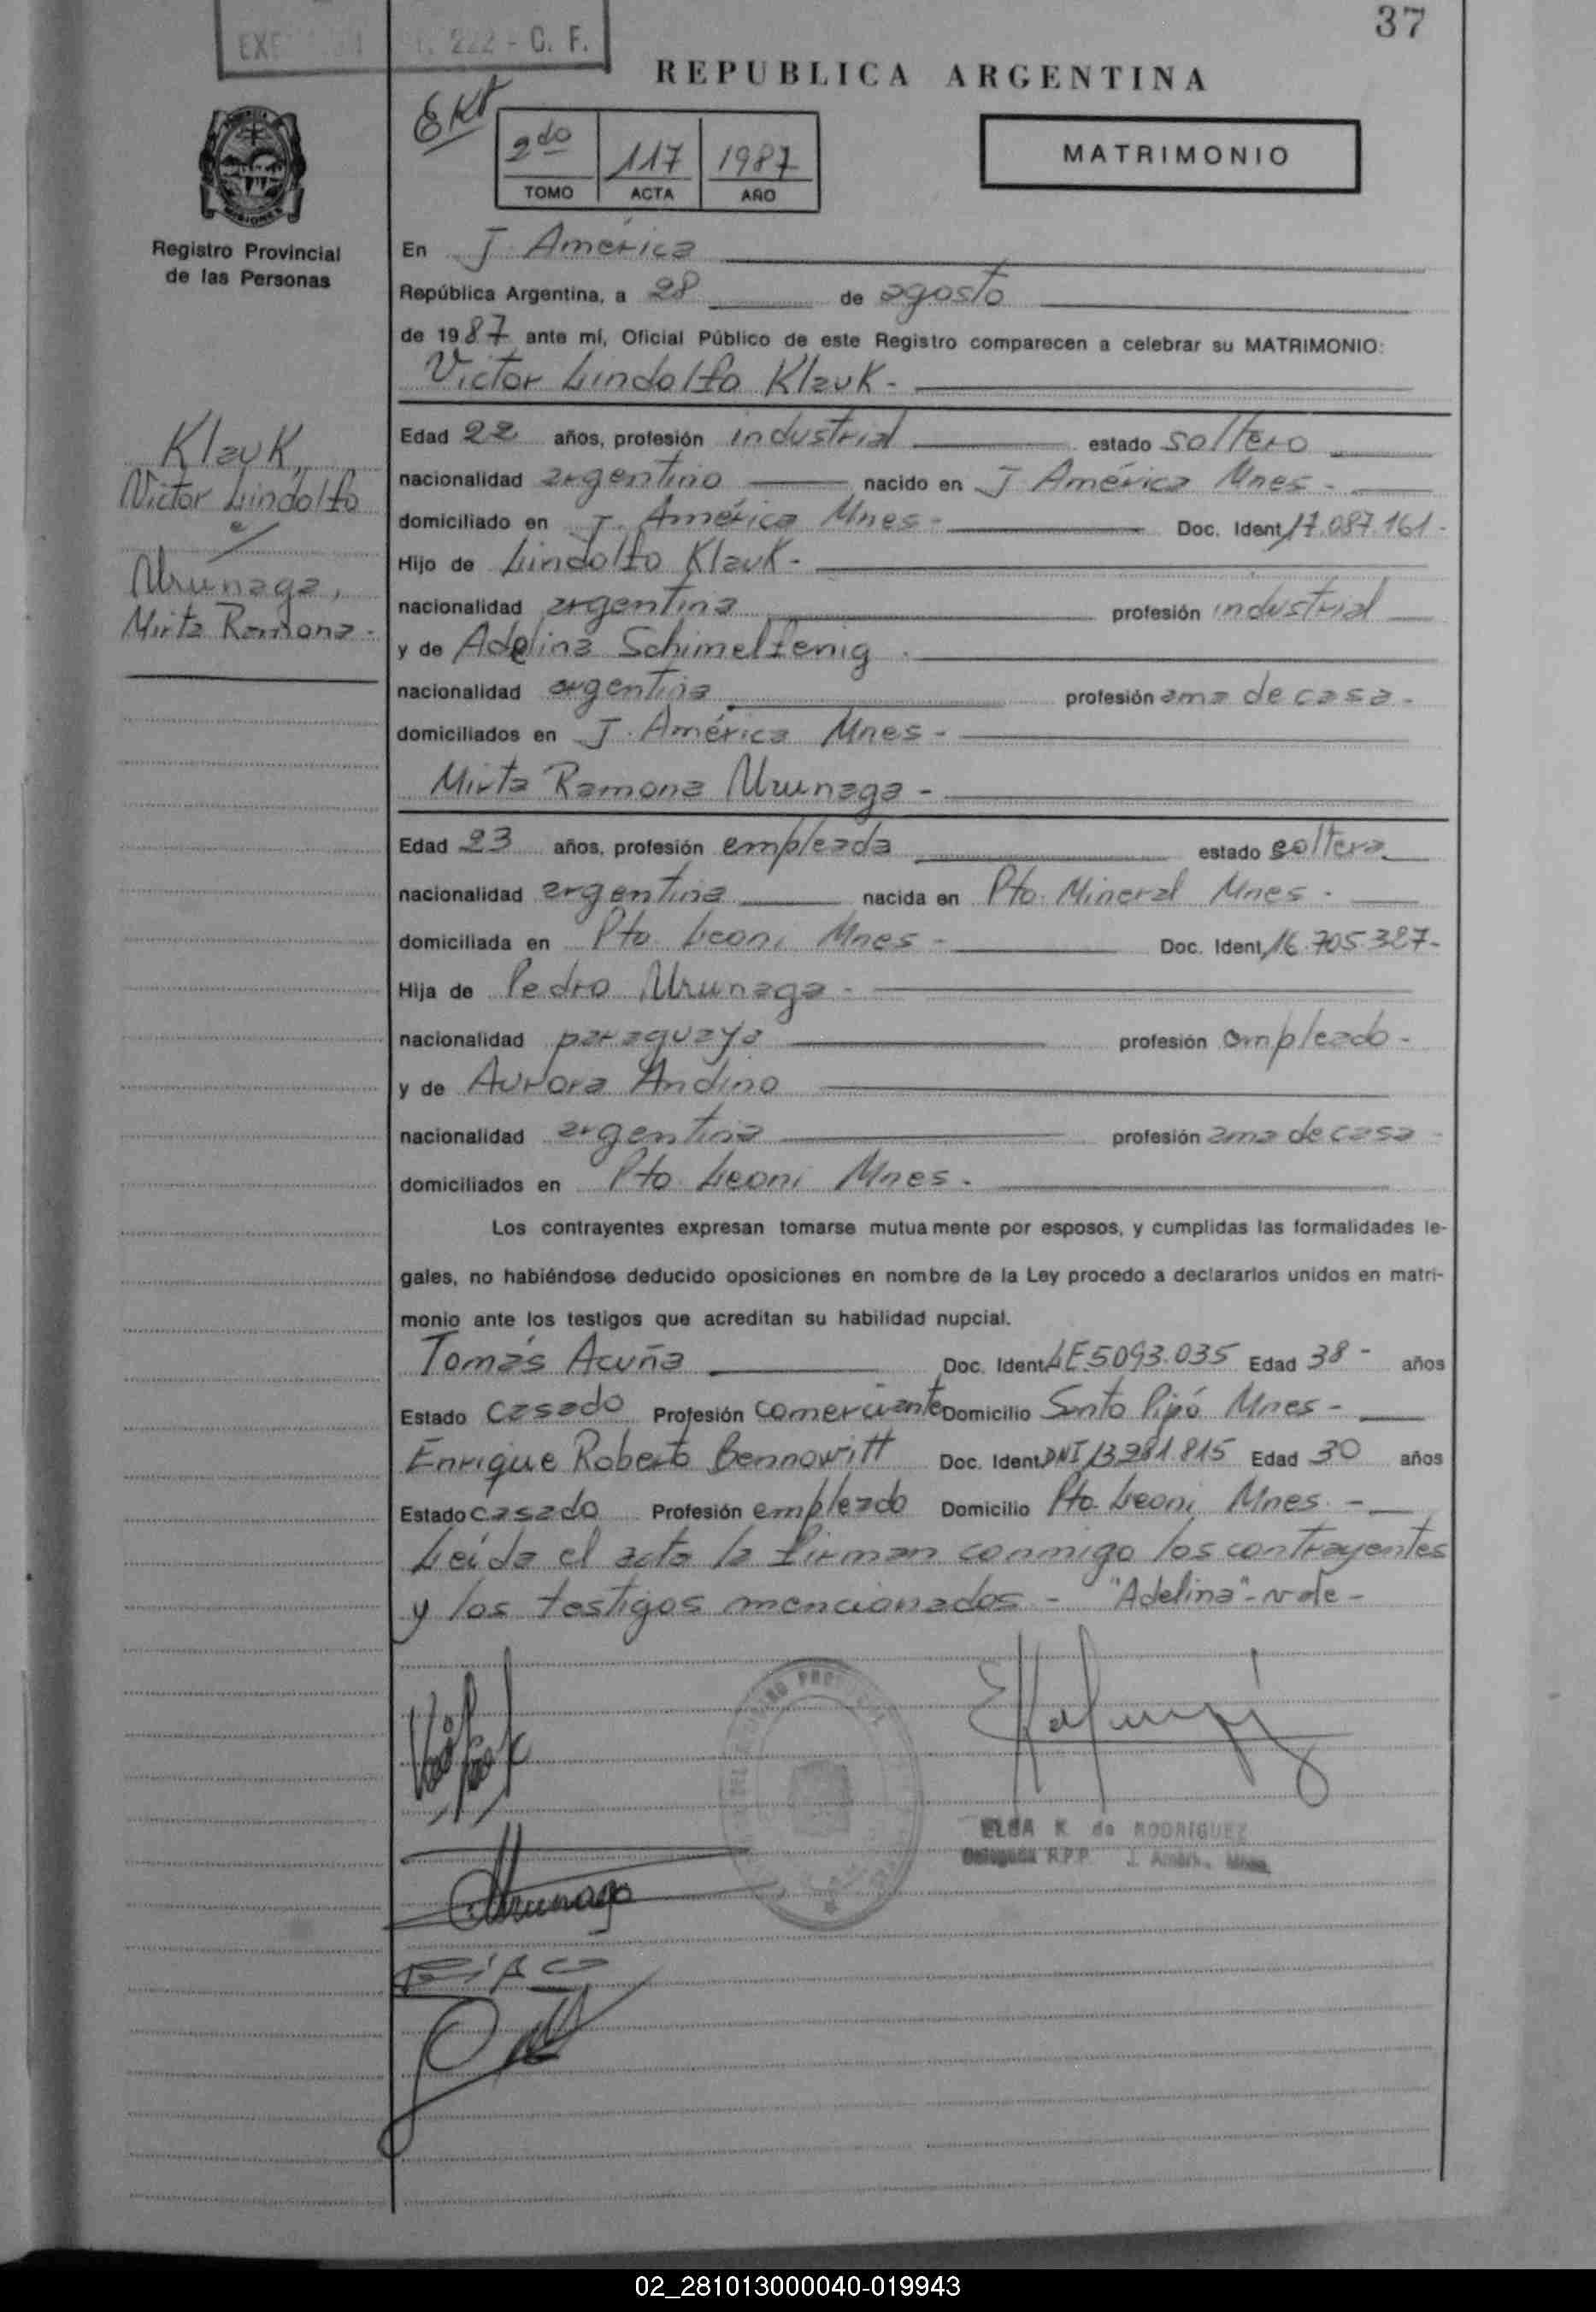 37
222 - C. F.
REPUBLICA ARGENTINA
2do 117 1987
TOMO ACTA AÑO
MATRIMONIO
MISIONES
Registro Provincial
de las Personas
En J. América
República Argentina, a 28 de agosto
de 1987 ante mí, Oficial Público de este Registro comparecen a celebrar su MATRIMONIO:
Victor Lindolfo Klauk -
Klauk,
Victor Lindolfo
c/
Urunaga,
Mirta Ramona -
Edad 22 años, profesión industrial estado soltero
nacionalidad argentino nacido en J. América Mnes -
domiciliado en J. América Mnes - Doc. Ident. 17.087.161 -
Hijo de Lindolfo Klauk -
nacionalidad argentina profesión industrial
y de Adelina Schimelfenig .
nacionalidad argentina profesión ama de casa -
domiciliados en J. América Mnes -
Mirta Ramona Urunaga -
Edad 23 años, profesión empleada estado soltera
nacionalidad argentina nacida en Pto. Mineral Mnes -
domiciliada en Pto. Leoni Mnes - Doc. Ident. 16.705.387 -
Hija de Pedro Urunaga -
nacionalidad paraguaya profesión empleado -
y de Aurora Andino
nacionalidad argentina profesión ama de casa -
domiciliados en Pto. Leoni Mnes -
Los contrayentes expresan tomarse mutuamente por esposos, y cumplidas las formalidades le-
gales, no habiéndose deducido oposiciones en nombre de la Ley procedo a declararlos unidos en matri-
monio ante los testigos que acreditan su habilidad nupcial.
Tomás Acuña Doc. Ident. LE 5.093.035 Edad 38 - años
Estado casado Profesión comerciante Domicilio Santo Pipó Mnes -
Enrique Roberto Bennowitt Doc. Ident. DNI 13.281.815 Edad 30 años
Estado casado Profesión empleado Domicilio Pto. Leoni Mnes -
Leída el acta la firman conmigo los contrayentes
y los testigos mencionados - "Adelina" - vale -
ELSA K de RODRIGUEZ
Delegada R.P.P. J. Amér. Mnes.
Urunaga
02_281013000040-019943